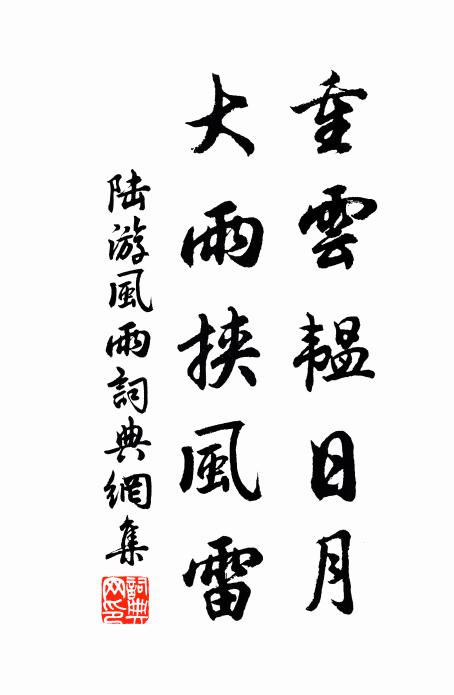 重雲韞日月
大雨挾風雷
陆游風雨詞典網集
詞典网印